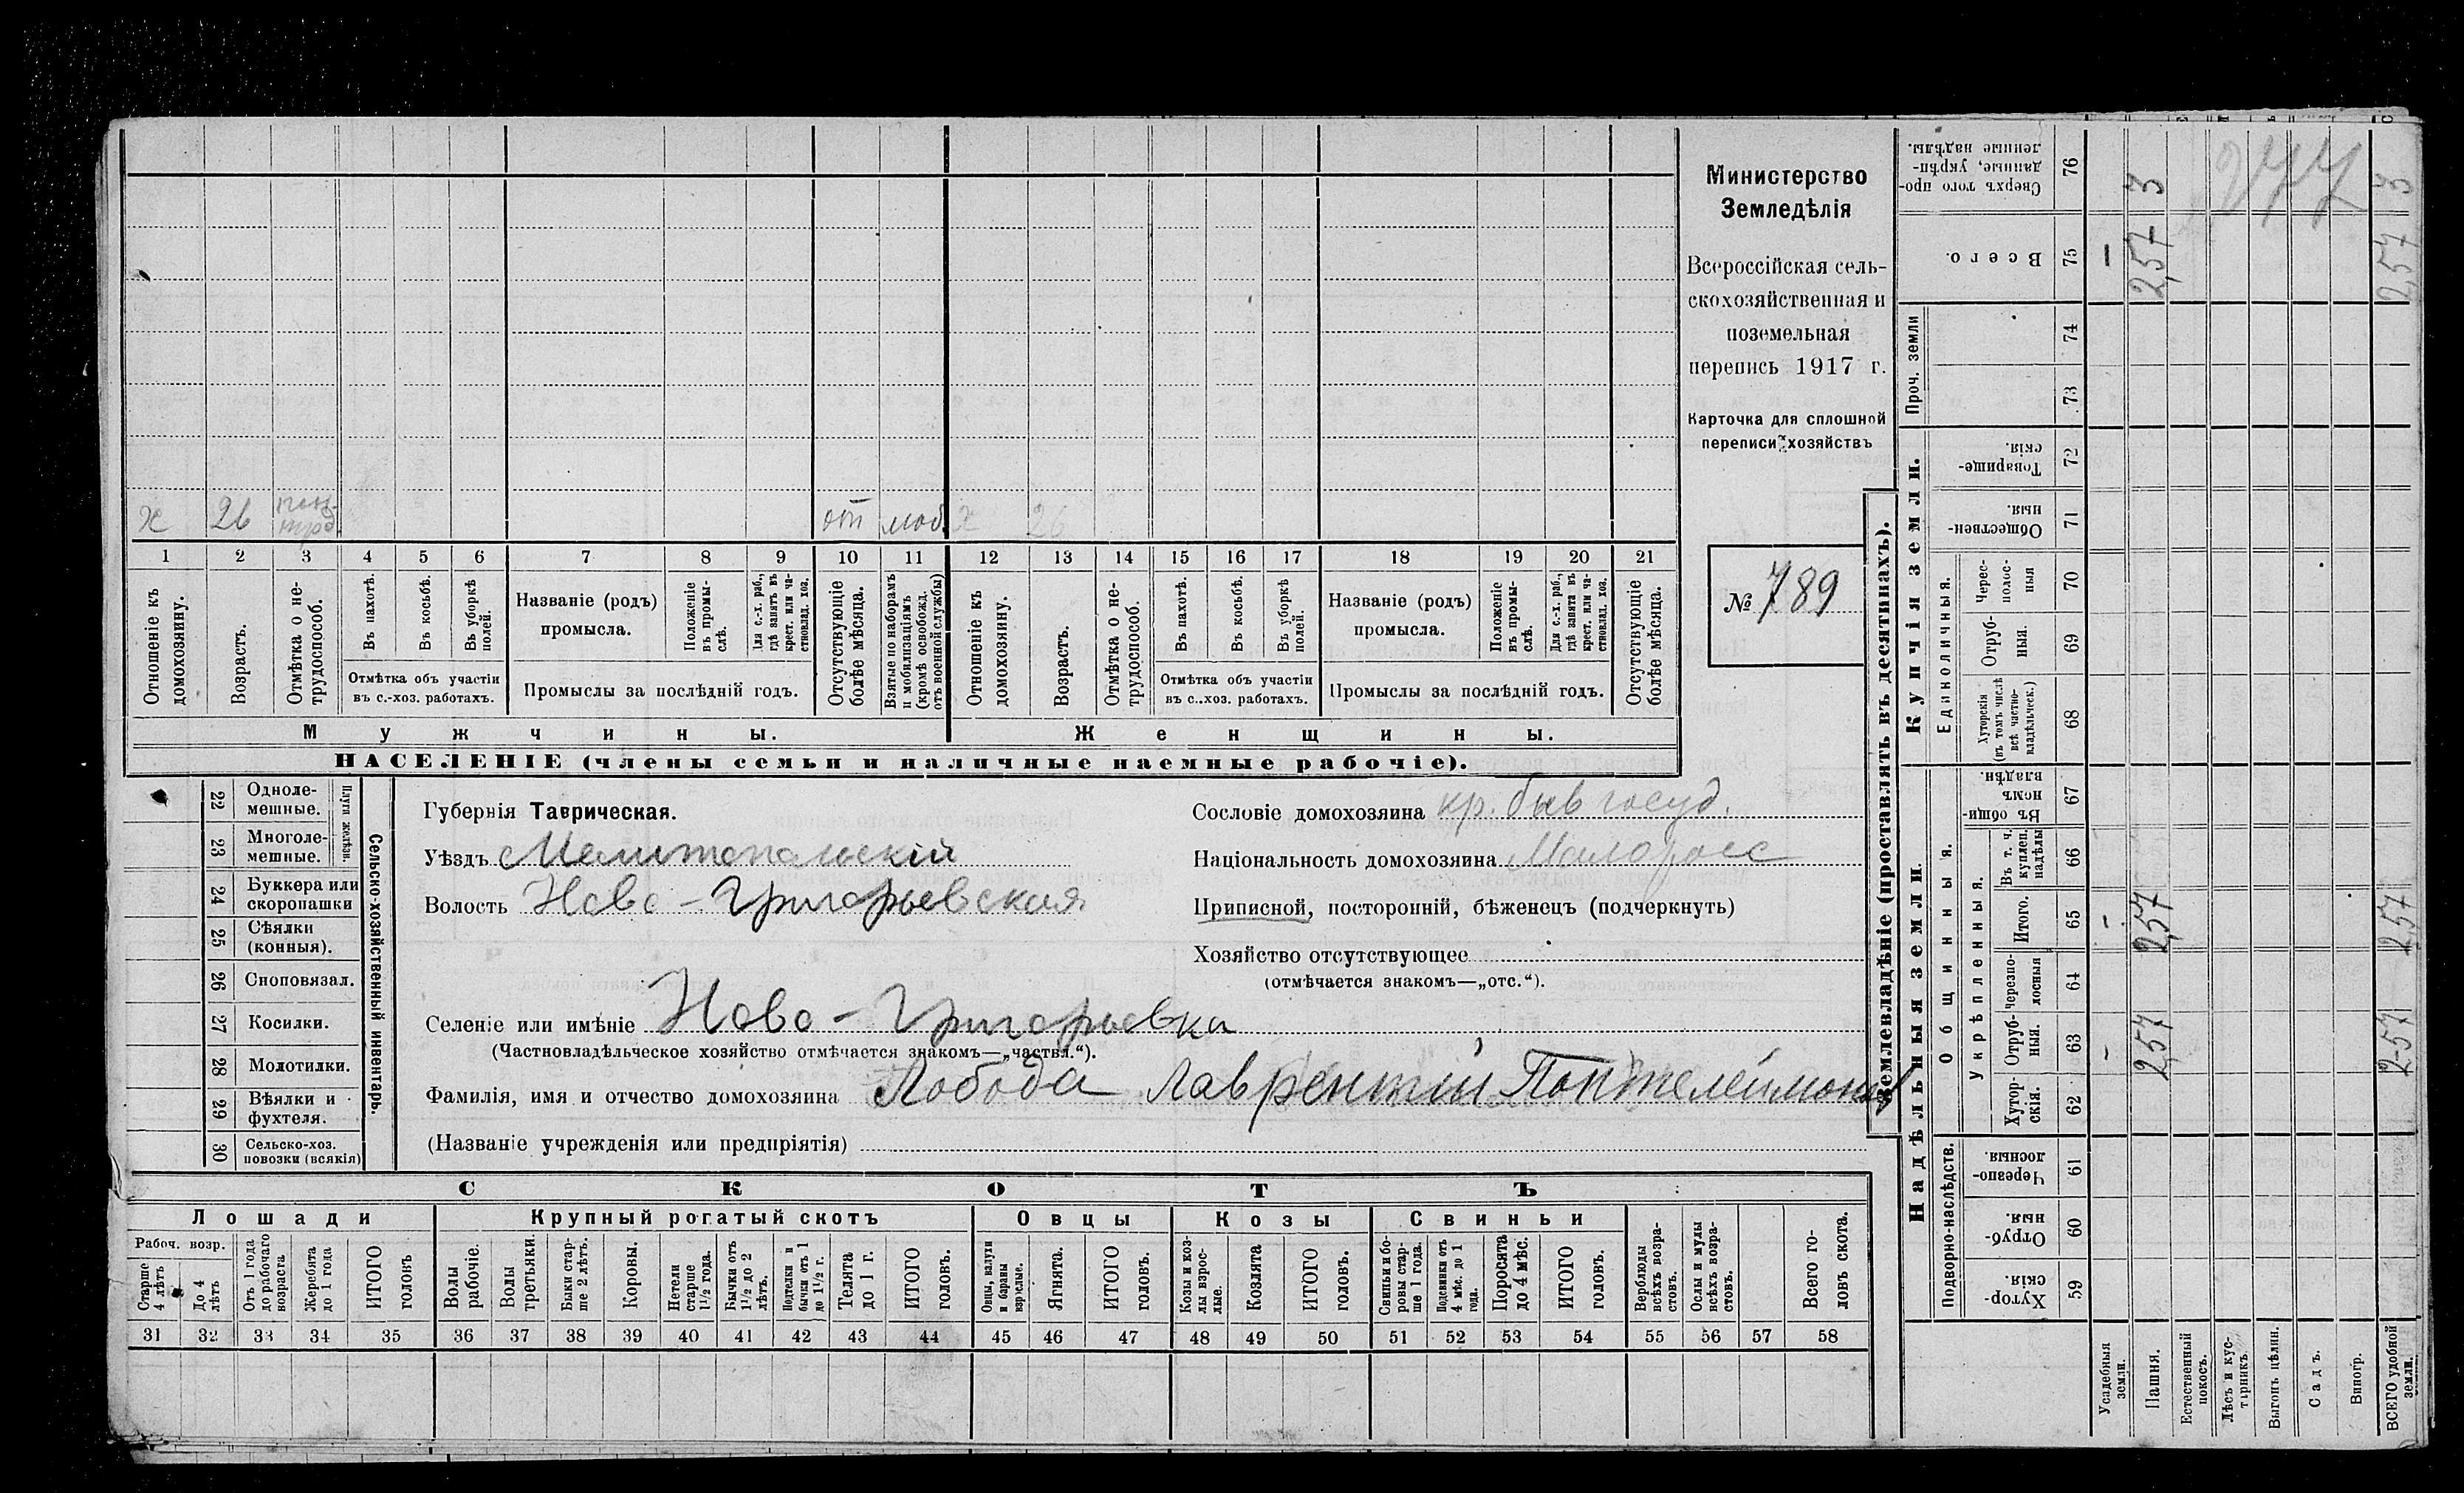 Министерство
Земледѣлія
Всероссійская сель-
скохозяйственная и
поземельная
перепись 1917 г.
Карточка для сплошной
переписи хозяйствъ
№ 789
х 26 от моб. х 26
1 2 3 4 5 6 7 8 9 10 11 12 13 14 15 16 17 18 19 20 21
Отношеніе къ домохозяину.
Возрастъ.
Отмѣтка о не-трудоспособ.
Въ пахотѣ.
Въ косьбѣ.
Въ уборкѣ полей.
Отмѣтка объ участіи
въ с.-хоз. работахъ.
Названіе (родъ)
промысла.
Положеніе въ промы-слѣ.
Для с.-х. раб., гдѣ занятъ въ крест. или ча-стновлад. хоз.
Промыслы за послѣдній годъ.
Отсутствующіе болѣе мѣсяца.
Взятые по наборамъ и мобилизаціямъ (кромѣ освобожд. отъ военной службы)
Отношеніе къ домохозяину.
Возрастъ.
Отмѣтка о не-трудоспособ.
Въ пахотѣ.
Въ косьбѣ.
Въ уборкѣ полей.
Отмѣтка объ участіи
въ с.-хоз. работахъ.
Названіе (родъ)
промысла.
Положеніе въ промы-слѣ.
Для с.-х. раб., гдѣ занята въ крест. или ча-стновлад. хоз.
Промыслы за послѣдній годъ.
Отсутствующіе болѣе мѣсяца.
Мужчины. Женщины.
НАСЕЛЕНІЕ (члены семьи и наличные наемные рабочіе).
Сельско-хозяйственный инвентарь.
Плуги желѣзн.
22 Одноле-мешные.
23 Многоле-мешные.
24 Буккера или скоропашки
25 Сѣялки (конныя).
26 Сноповязал.
27 Косилки.
28 Молотилки.
29 Вѣялки и фухтеля.
30 Сельско-хоз. повозки (всякія)
Губернія Таврическая.
Уѣздъ Мелитопольскій
Волость Ново-Григорьевская
Сословіе домохозяина кр. быв госуд.
Національность домохозяина Малоросс
Приписной, посторонній, бѣженецъ (подчеркнуть)
Хозяйство отсутствующее
(отмѣчается знакомъ—„отс.“).
Селеніе или имѣніе Ново-Григорьевка
(Частновладѣльческое хозяйство отмѣчается знакомъ—„частвл.“).
Фамилія, имя и отчество домохозяина Лобода Лаврентій
(Названіе учрежденія или предпріятія)
СКОТЪ
Лошади Крупный рогатый скотъ Овцы Козы Свиньи
Рабоч. возр.
Старше 4 лѣтъ
До 4 лѣтъ
Отъ 1 года до рабочаго возраста
Жеребята до 1 года
ИТОГО головъ
Волы рабочіе.
Волы третьяки.
Быки стар-ше 2 лѣтъ.
Коровы.
Нетели старше 1½ года.
Бычки отъ 1½ до 2 лѣтъ.
Подтелки и бычки отъ 1 до 1½ г.
Телята до 1 г.
ИТОГО головъ.
Овцы, валухи и бараны взрослые.
Ягнята.
ИТОГО головъ.
Козы и коз-лы взрос-лые.
Козлята
ИТОГО головъ.
Свиньи и бо-ровы стар-ше 1 года.
Подсвинки отъ 4 мѣс. до 1 года.
Поросята до 4 мѣс.
ИТОГО головъ.
Верблюды всѣхъ возра-стовъ.
Ослы и мулы всѣхъ возра-стовъ.
Всего го-ловъ скота.
31 32 33 34 35 36 37 38 39 40 41 42 43 44 45 46 47 48 49 50 51 52 53 54 55 56 57 58
Землевладѣніе (проставлять въ десятинахъ).
Купчія земли.
Надѣльныя земли.
Сверхъ того про-данные, укрѣп-ленные надѣлы. 76 3 3
Всего. 75 — 2,57 2,57
Проч. земли
74
73
Товарище-скія. 72
Обществен-ныя. 71
Единоличныя.
Черес-полос-ныя 70
Отруб-ныя. 69
Хуторскія (въ томъ числѣ всѣ частно-владѣльческ.) 68
Общинныя.
Въ общин-номъ владѣн. 67
Укрѣпленныя.
Въ т. ч. куплен. надѣлы 66
Итого. 65 - 2,57 2,57
Черезпо-лосныя 64
Отруб-ныя. 63 - 2,57 2-57
Хутор-скія. 62
Подворно-наслѣдств.
Черезпо-лосныя. 61
Отруб-ныя. 60
Хутор-скія. 59
Усадебныя земли.
Пашня.
Естественный покосъ.
Лѣсъ и кус-тарникъ.
Выгонъ цѣлин.
Садъ.
Виногр.
ВСЕГО удобной земли.